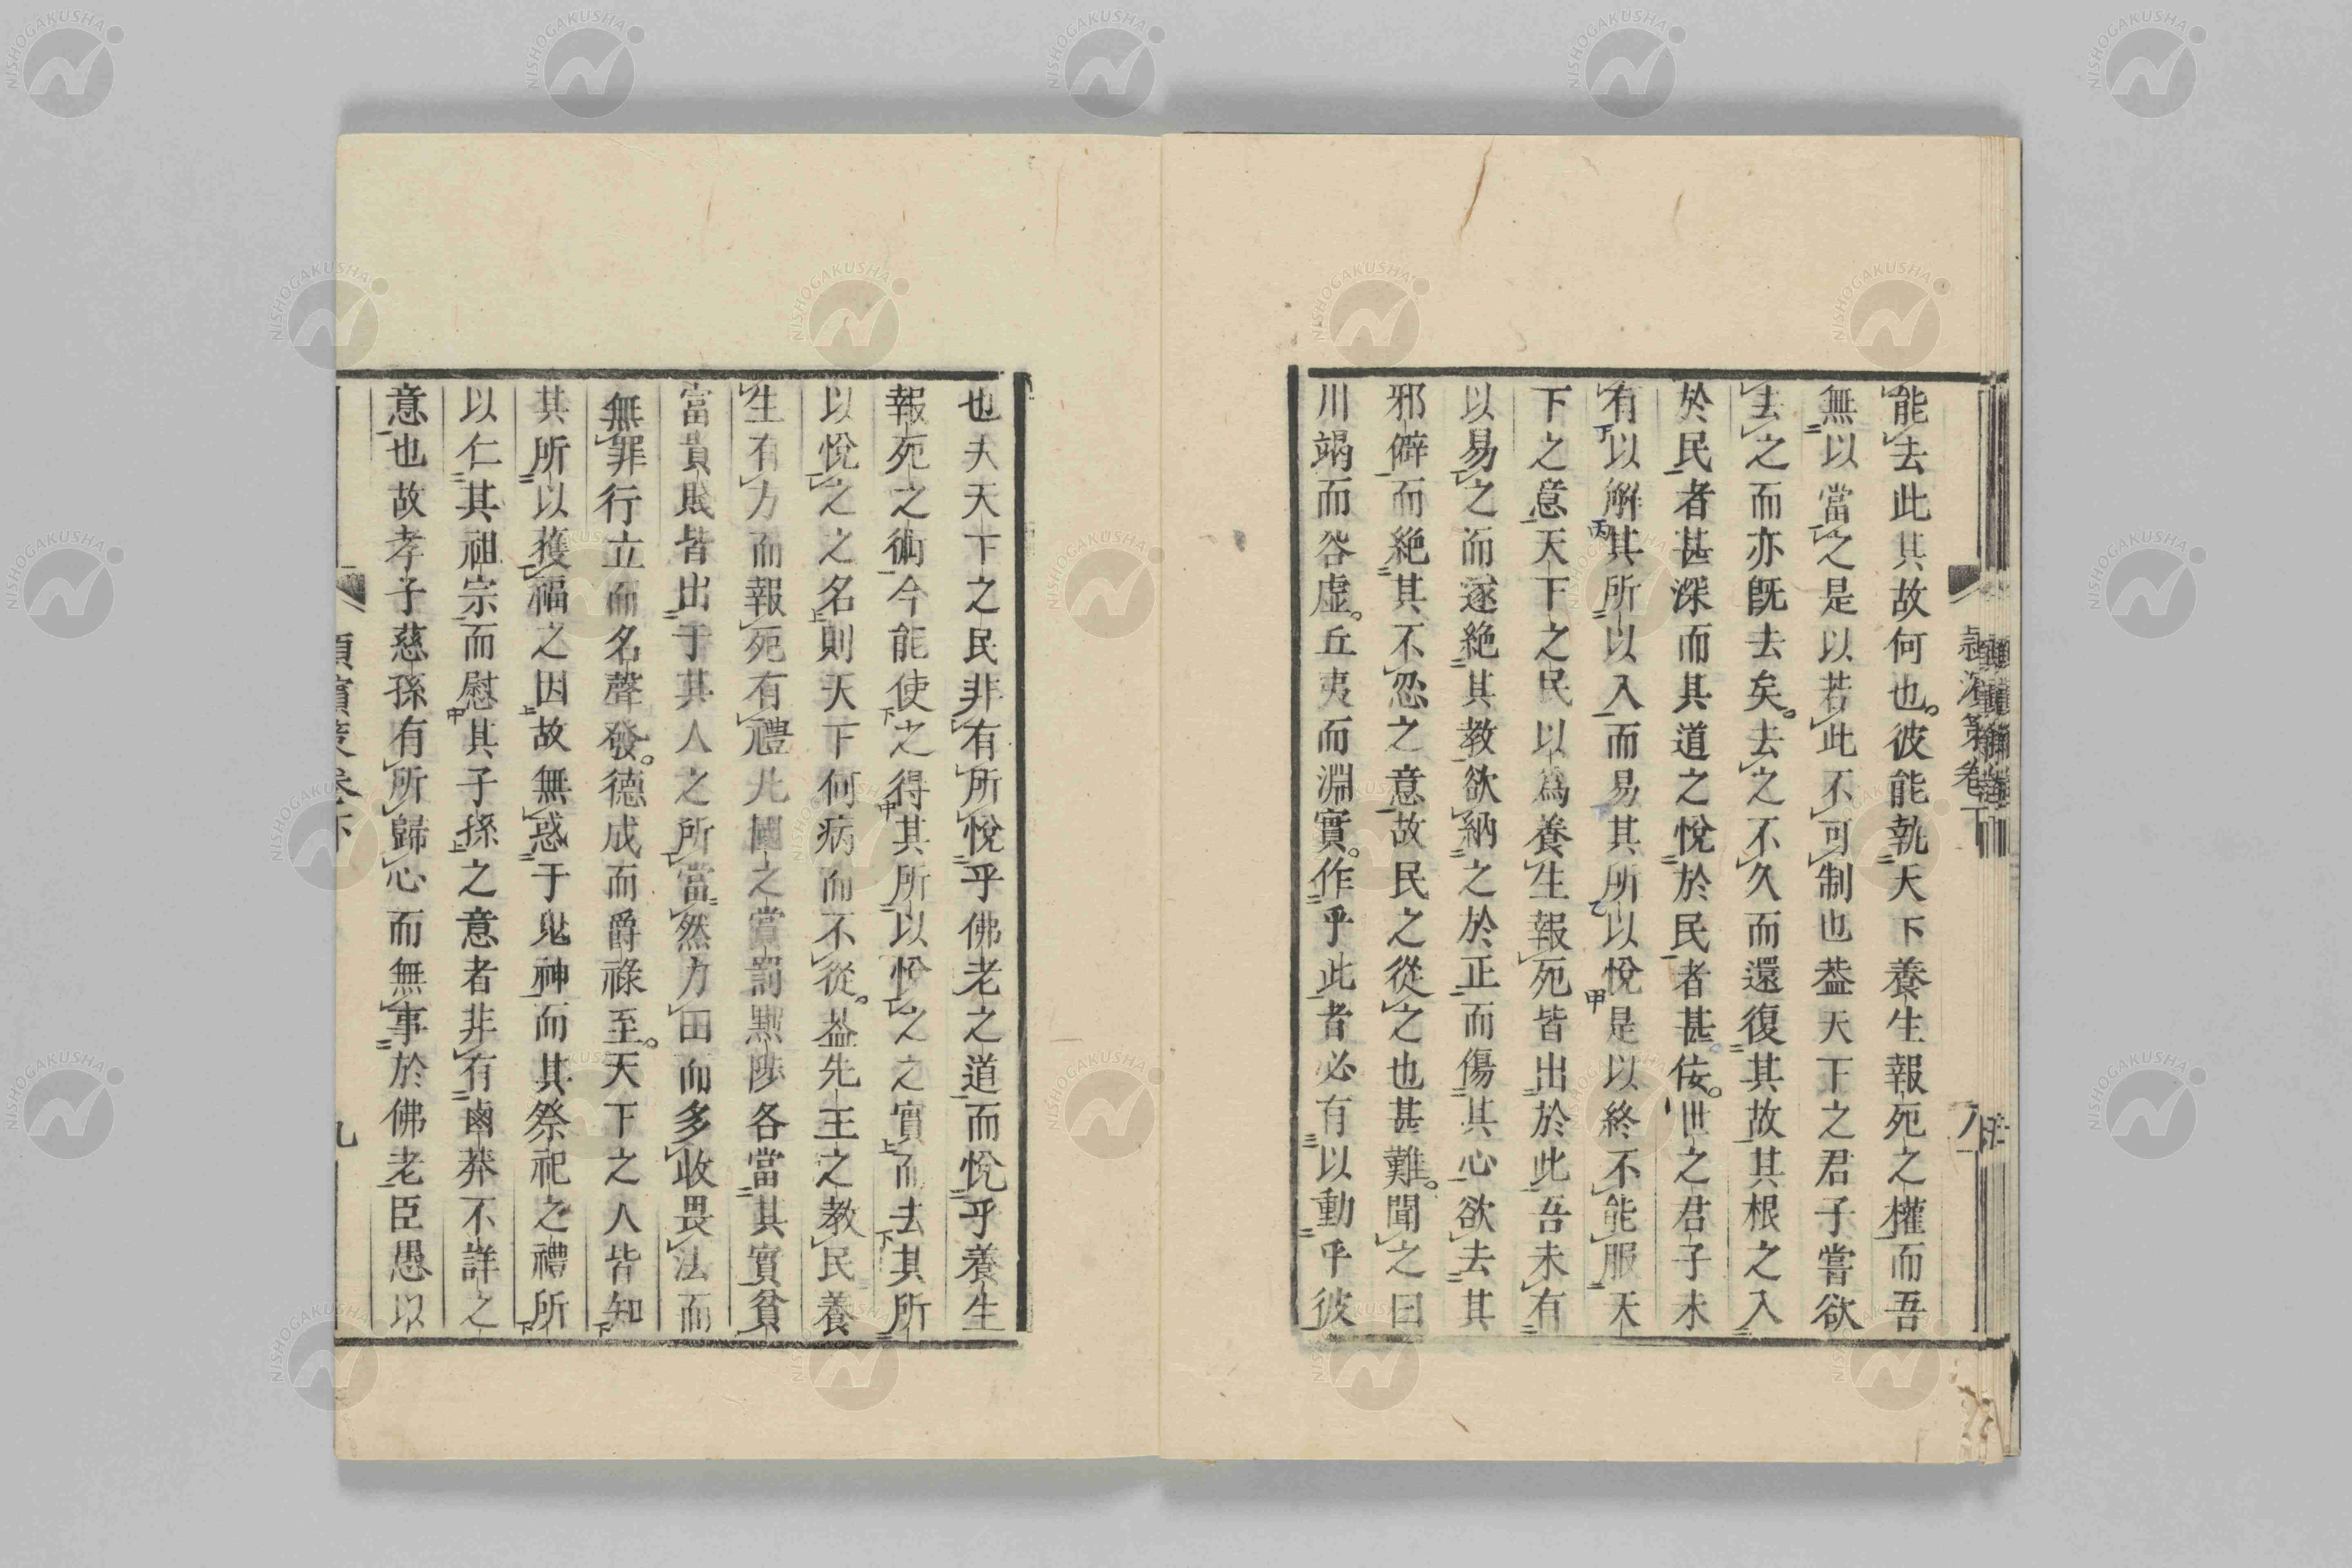 能去此其故何也。彼能執天下養生報死之權而吾
無以當之是以若此不可制也葢天下之君子嘗欲
去之而亦旣去矣。去之不久而還復其故其根之入
於民者甚深而其道之悅於民者甚佞。世之君子未
有以解其所以入而易其所以悅是以終不能服天
下之意天下之民以爲養生報死皆出於此吾未有
以易之而遂絶其教欲納之於正而傷其心欲去其
邪僻而絶其不忍之意故民之從之也甚難。聞之曰
川竭而谷虛。丘夷而淵實。作乎此者必有以動乎彼
也夫天下之民非有所悅乎佛老之道而悅乎養生
報死之術今能使之得其所以悅之之實而去其所
以悅之之名則天下何病而不從。葢先王之教民養
生有力而報死有禮凡國之賞罰黜陟各當其實貧
富貴賤皆出于其人之所當然力田而多收畏法而
無罪行立而名聲發。德成而爵祿至。天下之人皆知
其所以獲福之因故無惑于鬼神而其祭祀之禮所
以仁其祖宗而慰其子孫之意者非有鹵莽不詳之
意也故孝子慈孫有所歸心而無事於佛老臣愚以
潁濱策卷下
九
NISHOGAKUSHA